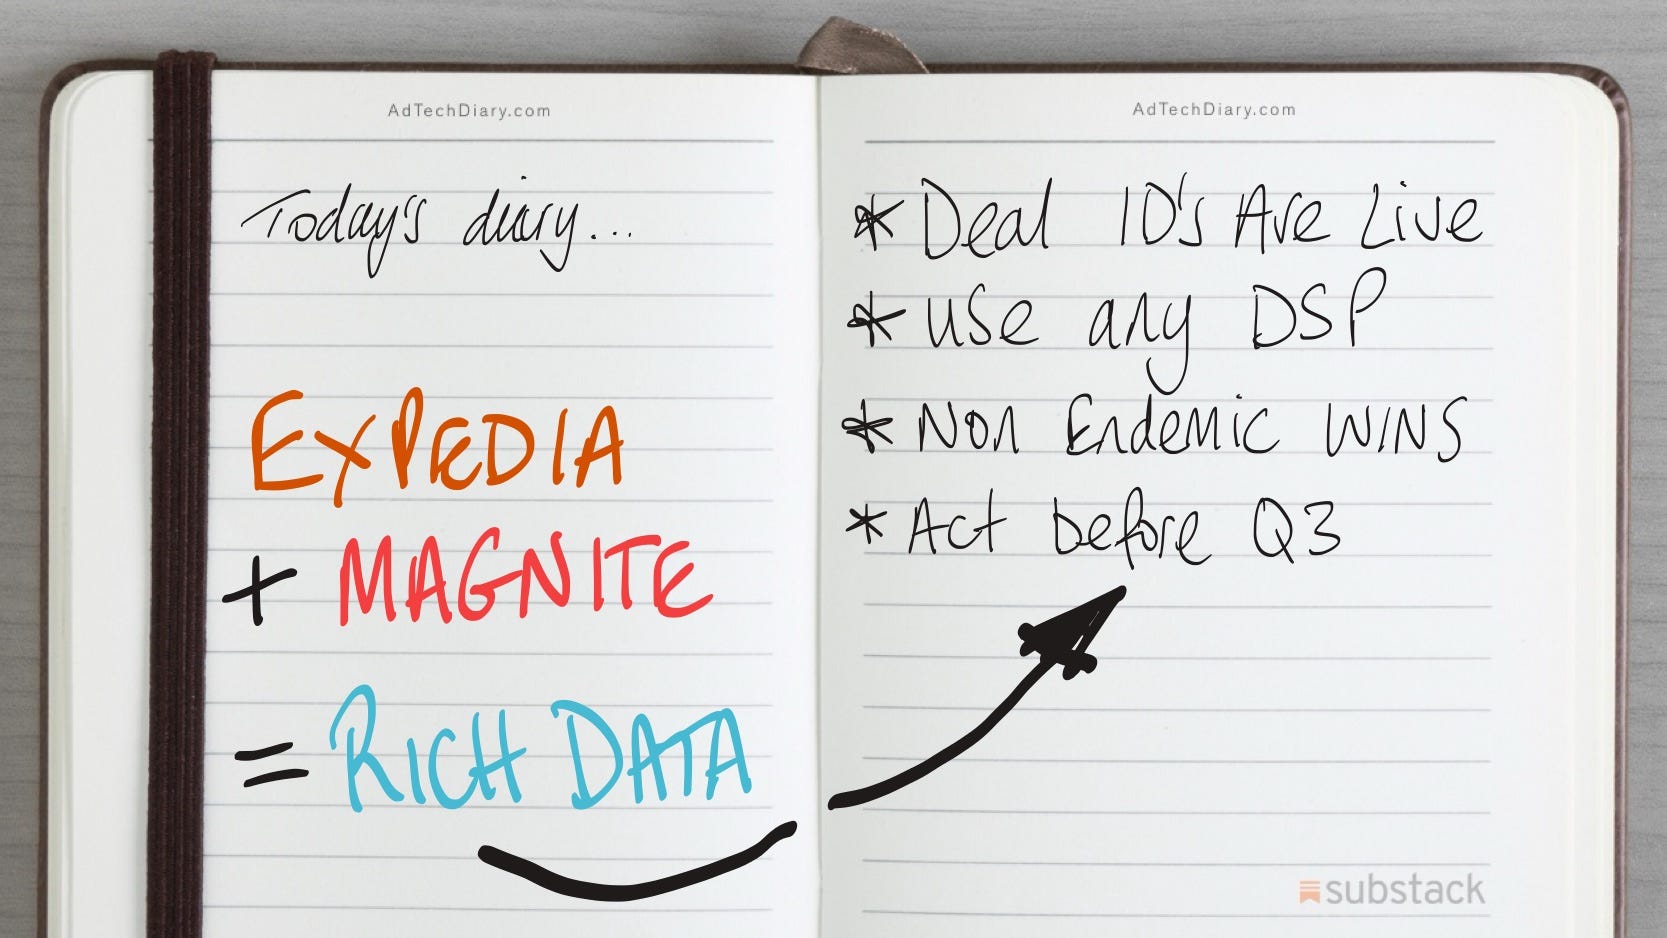 AdTechDiary.com
Today's diary...
EXPEDIA
+ MAGNITE
= RICH DATA
AdTechDiary.com
* Deal ID's Are Live
* Use any DSP
* Non Endemic WINS
* Act before Q3
substack